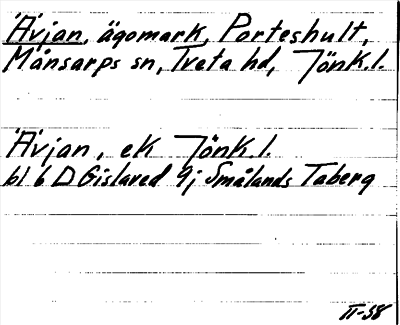 Åvjan, ägomark, Porteshult,
Månsarps sn, Tveta hd, Jönk.l.
Åvjan, ek Jönk.l.
bl 6 D Gislaved 9j Smålands Taberg
II-58